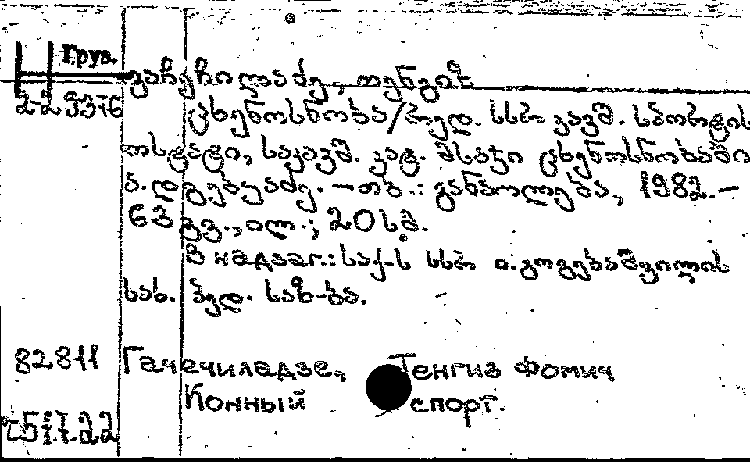 Груз.
გაჩეჩილაძე, თენგიზ
22937б
ცხენოსნობა/რედ. სსრ კავშ. სპორტის
ოსტატი, საკავშ. კატ. მსაჯი ცხენოსნობაში
ა. დგებუაძე. – თბ.: განათლება, 1982.–
63 გვ., ილ.; 20 სმ.
В надзаг.: საქ-ს სსრ ი.გოგებაშვილის
სახ. პედ. საზ-ბა.
82811 Гачечиладзе, Тенгиз Фомич
Конный спорт.